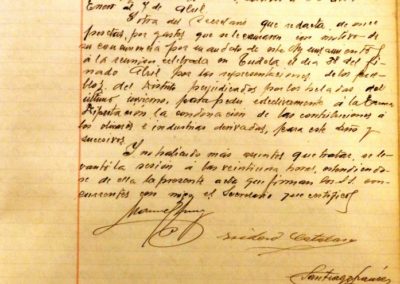 Enero al 7 de Abril.
Y otra del Secretario que redacta, de nueve
pesetas, por gastos que se le irrogaron con motivo de
su concurrencia por mandato de este Ayuntamiento,
a la reunion celebrada en Tudela el dia 28 del fi-
nado Abril, por los representaciones de los pue-
blos del distrito perjudicados por las heladas del
último invierno, para pedir colectivamente a la Excma
Diputacion la condonación de las contribuciones a
los olivares e industrias derivadas, para este año y
sucesivos.
Y no habiendo más asuntos que tratar, se le-
vantó la sesión a las veintiuna horas, extendiendo-
se de ella la presente acta que firman los SS. con-
currentes con migo el Secretario que certifico.
Isidoro Catalan
Santiago